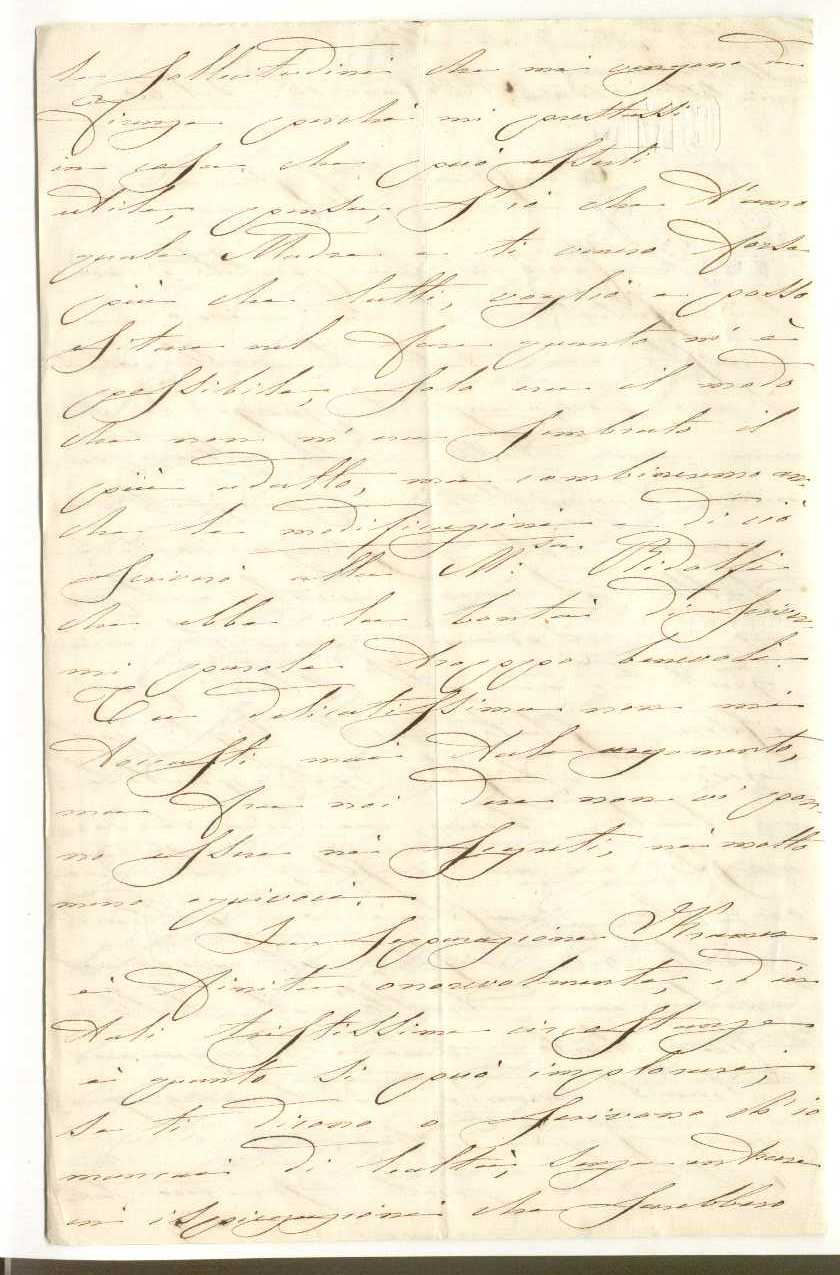 le sollecitudini che mi vengono da
Firenze perché mi prestassi
in cosa che può esserti
utile, pensa, s'io che t'amo
quale Madre e ti venero forse
più che tutti, voglio e posso
esitare nel fare quanto m'è
possibile, solo era il modo
che non m'era sembrato il
più adatto, ma combineremo an-
che le modificazioni e di ciò
scriverò alla M.sa Ridolfi
che ebbe la bontà di scriver-
mi parole troppo benevoli.
Tu delicatissima non mi
toccasti mai tale argomento,
ma fra noi due non vi pon-
no essere nè segreti, nè molto
meno equivoci.
La Separazione Kramer
è finita onorevolmente, ed in
tali tristissime circostanze
è quanto si può implorare;
se ti dicono o scrivono ch'io
mancai di lealtà, senza entrare
in ispiegazioni che sarebbero